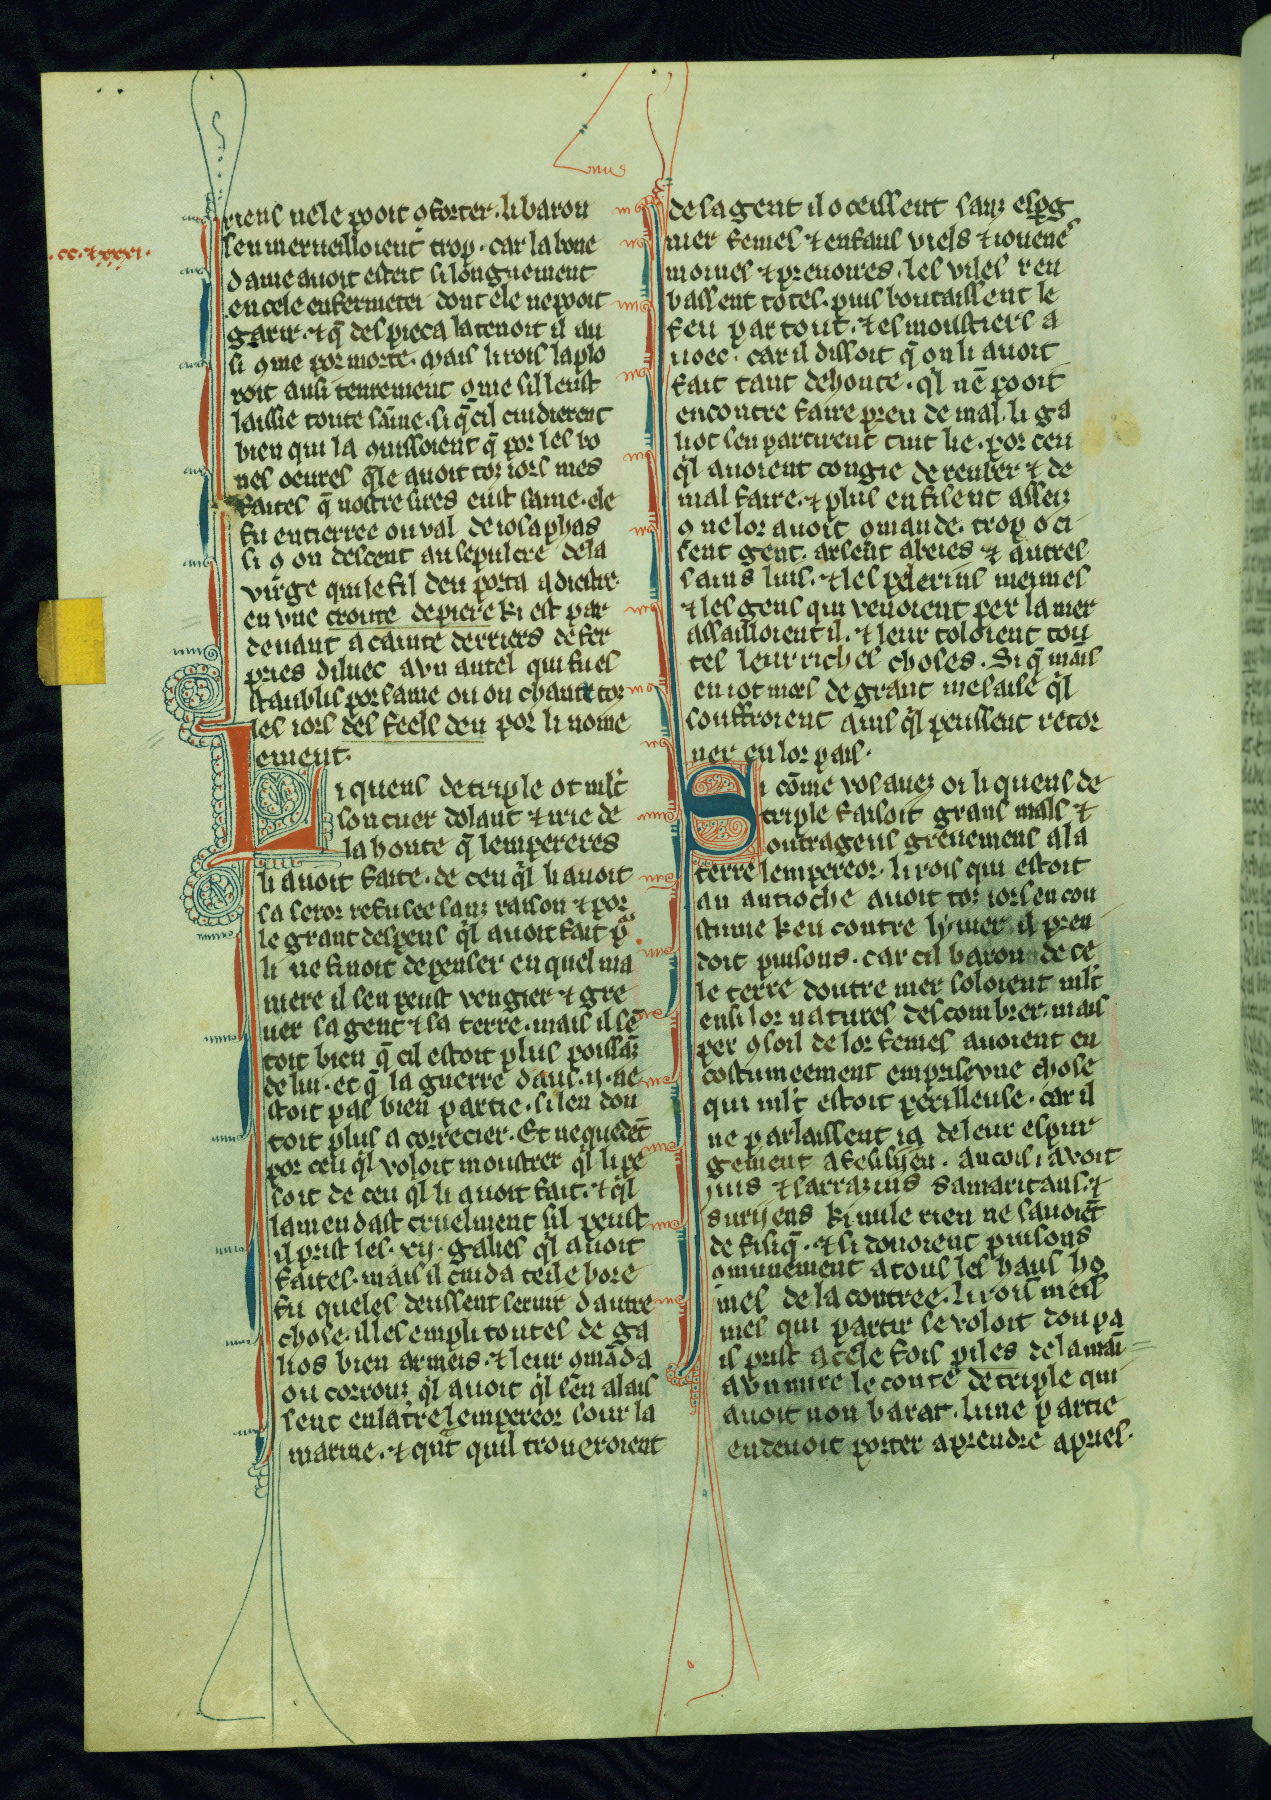 .cc.⁊xxxi.
riens nele pooit ꝯforter. li baron
sen merueilloient trop. car la bone
dame auoit esteit si longuement
en cele enfermetei dont ele ne pooit
garir. ⁊ q̄ des pieca la tenoit il au
si ꝯme por morte. mais li rois la plo
roit ausi tenrement ꝯme sil leust
laissie toute saīne. si q̄ cil cuidierent
bien qui la ꝯnissoient q̄ por les bo
nes oeures q̄le auoit toz iors mes
faites q̄ nostre sires eust same. ele
fu entierree ou val de iosaphas
si ꝯ on descent au sepulcre de la
virge qui le fil deu porta a diestre.
en vne croute de piere ki est par
deuant a cainte derriers de fer
pries diluec a vn autel qui fu es
staublis por lame ou on chante toz
les iors des feels deu por li nome
ement.
Li quens de triple ot ml't
son cuer dolant ⁊ irie de
la honte q̄ lempereres
li auoit faite. de ceu q̄l li auoit
sa seror refusee sanz raison ⁊ por
le grant despens q̄l auoit fait p̄.
li ne finoit de penser en quel ma
niere il sen peust vengier ⁊ gre
uer sa gent ⁊ sa terre. mais il sē
toit bien q̄ cil estoit plus poissāz
de lui. et q̄ la guerre daus .ij. ne
stoit pas bien partie. si len dou
toit plus a correcier. Et nequedēt
por ceu q̄l voloit moustrer q̄l li pe
soit de ceu q̄l li auoit fait. ⁊ q̄l
lamendast cruelment sil peust
il prist les .xij. galies q̄l auoit
faites. mais il cuida teile hore
fu queles deussent seruir dautre
chose. il les empli toutes de ga
lios bien armeis. ⁊ leur ꝯmāda
ou corrouz q̄l auoit q̄l sen alais
sent en la tre lempereor sour la
marine. ⁊ q̄nt quil troueroient
de sa gent il oceissent sanz esp̱g
nier femes ⁊ enfans viels ⁊ iouene
moines ⁊ prenoires. les viles reu
bassent totes. puis boutaissent le
feu par tout. ⁊ es moustiers a
uoec. car il dissoit q̄ on li auoit
fait tant de honte. q̄l nē pooit
encontre faire preu de mal. li ga
liot sen partirent tuit lie. por ceu
q̄l auoient congie de reuber ⁊ de
mal faire. ⁊ plus en fisent asseiz
ꝯ ne lor auoit ꝯmande. trop oci
sent gent. arsent abeies ⁊ autres
sains luis. ⁊ les pelerins meimes
⁊ les gens qui venoient per la mer
assailloient il. ⁊ leur toloient tou
tes leur riches choses. Si q̄ maīs
en i ot mors de grant mesaise q̄l
souffroient ains q̄l peussent retor
ner en lor pais.
Si cōme vos auez oi li quens de
triple faisoit grans mals ⁊
outrageus greuemens a la
terre lempereor. li rois qui estoit
an antioche auoit toz iors en cou
stume ken contre lyuier il pren
doit puisons. car cil baron de ce
le terre doutre mer soloient ml't
ensi lor natures descombrer. mais
per ꝯsoil de lor femes auoient en
costumeement emprise vne chose
qui ml't estoit perilleuse. car il
ne parlaissent ia de leur espur
gement a fesisijen. ancois i auoit
juis ⁊ sarrazins samaritans. ⁊
surijens ki nule rien ne sauoiēt
de fisiq̄. ⁊ si donoient puisons
ꝯmunement a tous les haus ho
mes de la contree. li rois mēis
mes qui partir se voloit dou pa
is prist a cele fois piles de la maī
a vn mire le conte de triple qui
auoit non barat. lune partie
en deuoit porter a prendre apries.